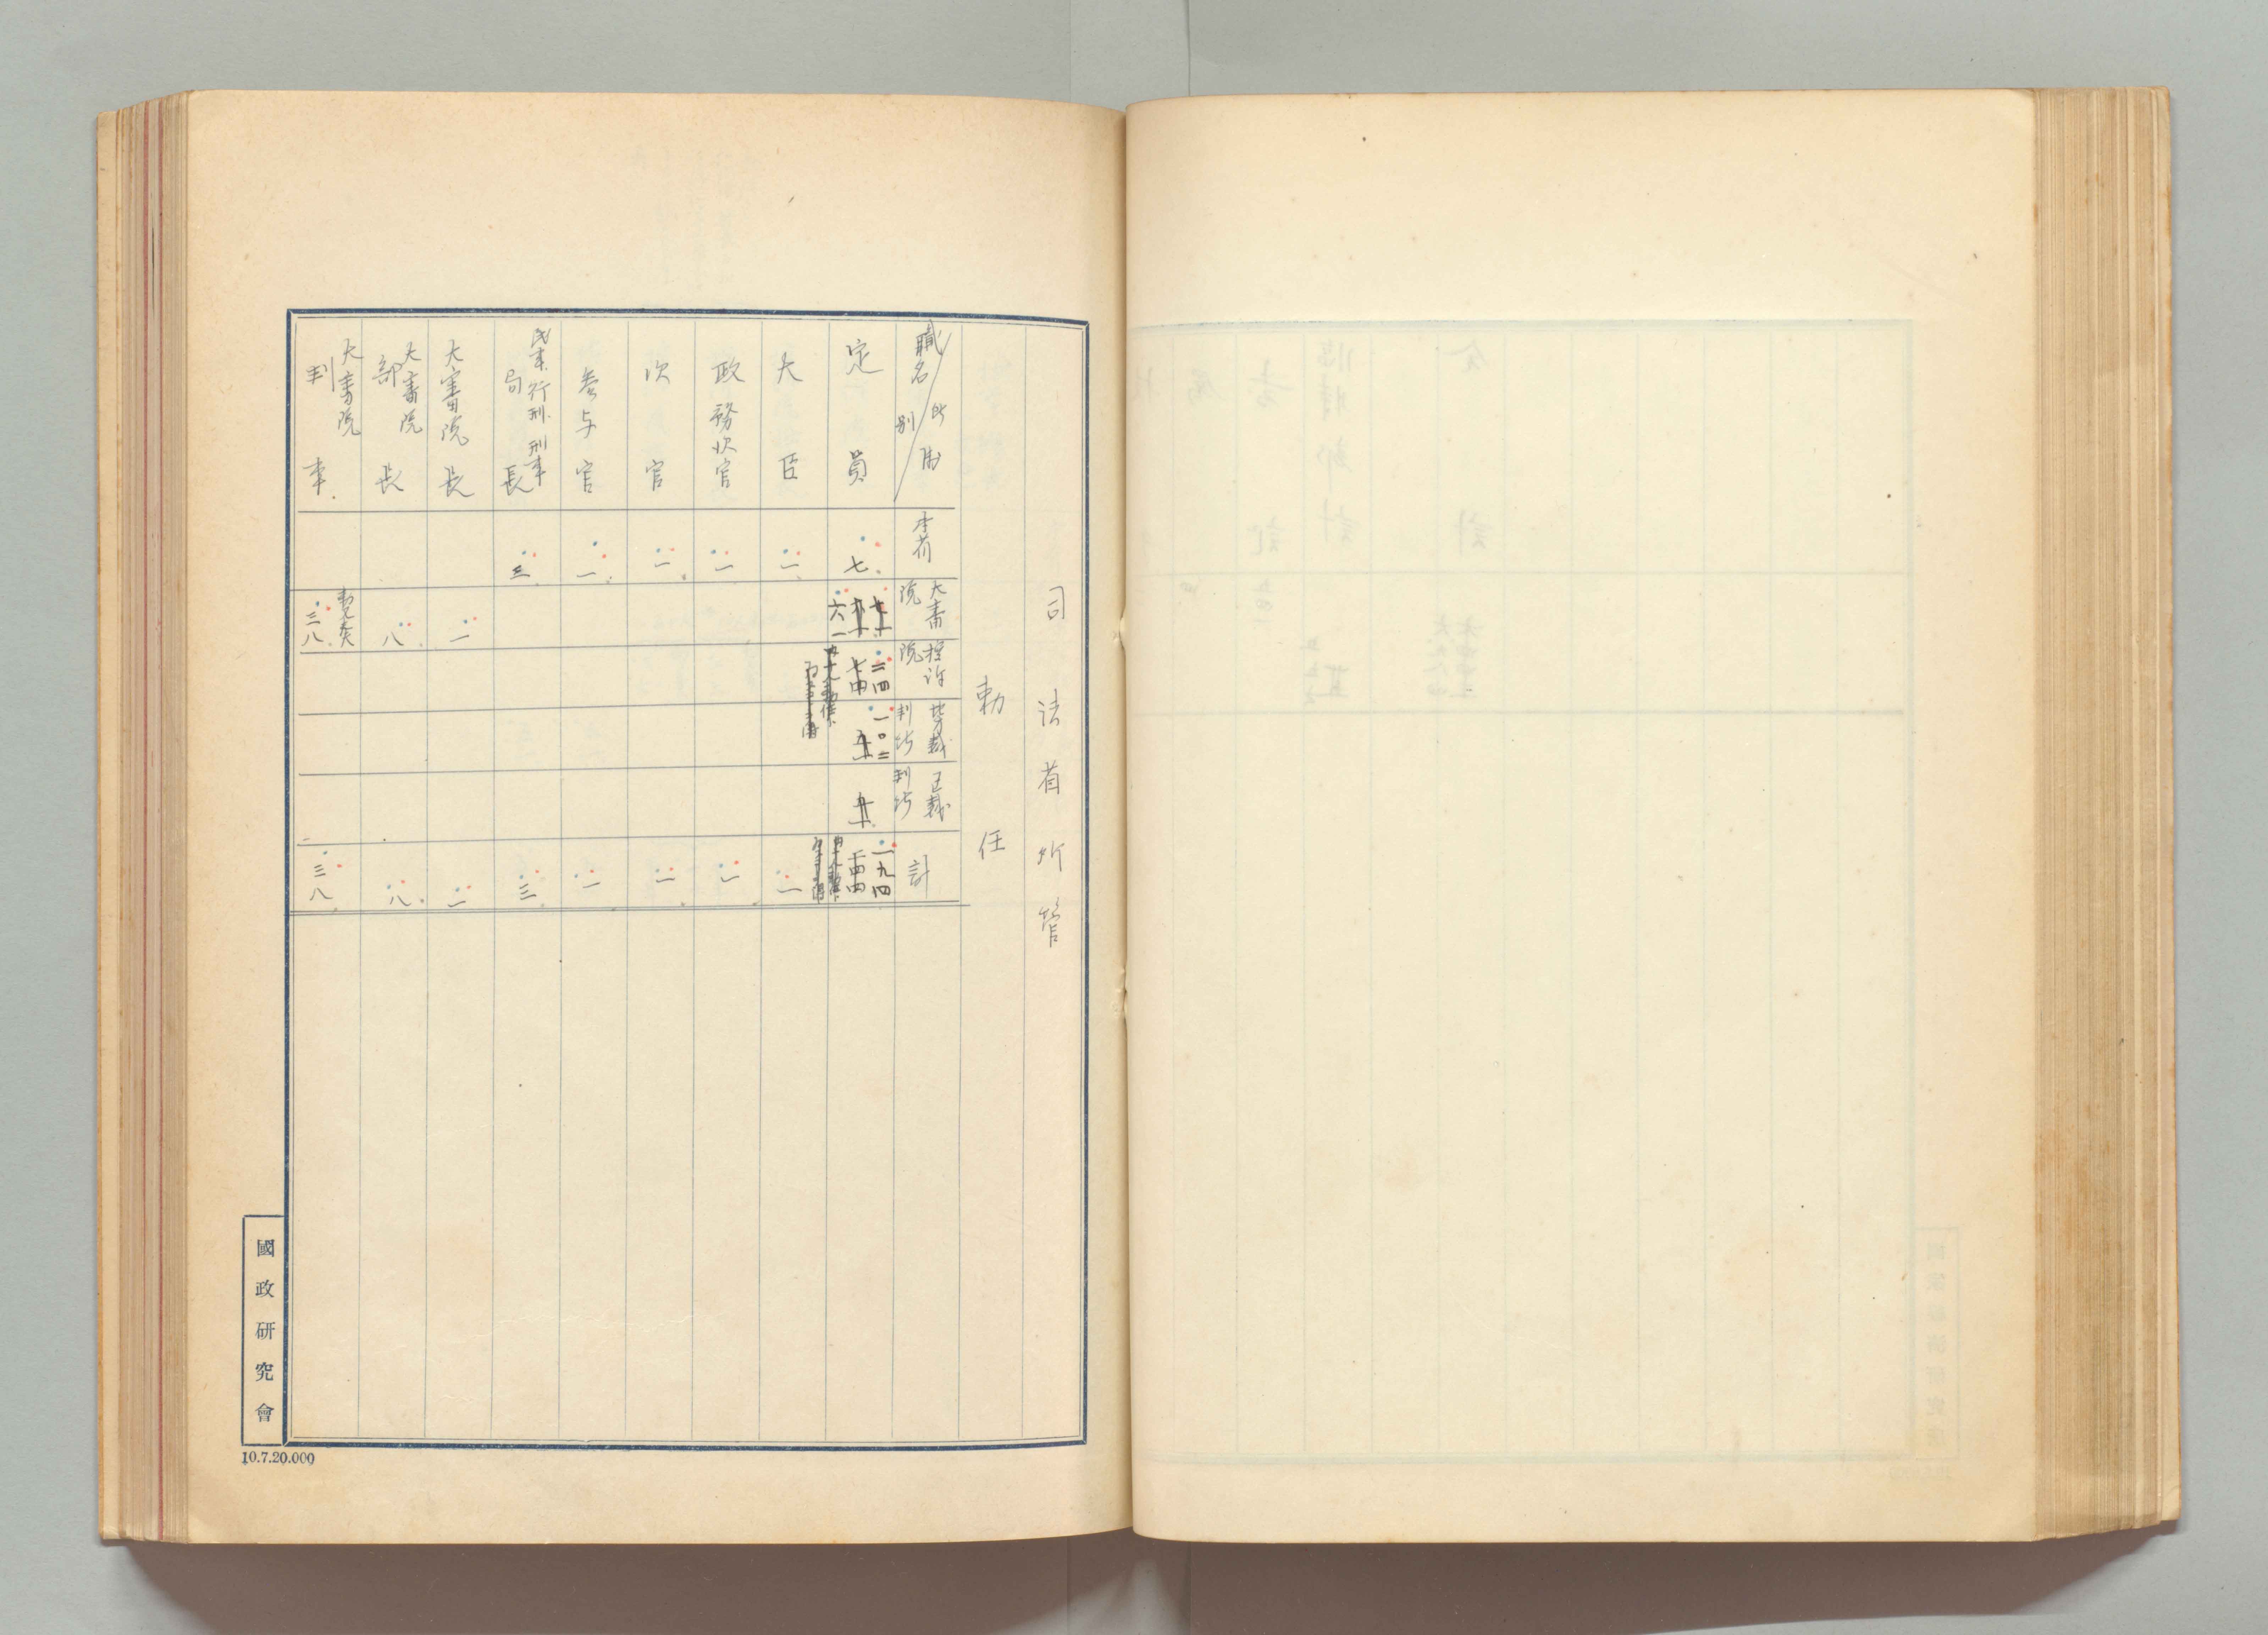 司法省所管
勅任
職名 所属別
本省
大審院
控訴院
地方裁判所
区裁判所
計
定員
七
六一
二四
一〇二
一九四
大臣
一
一
政務次官
一
一
次官
一
一
参与官
一
一
民事 行刑 刑事
局長
三
三
大審院長
一
一
大審院
部長
八
八
大審院
判事
勅又奏
三八
三八
國政研究會
10.7.20.000